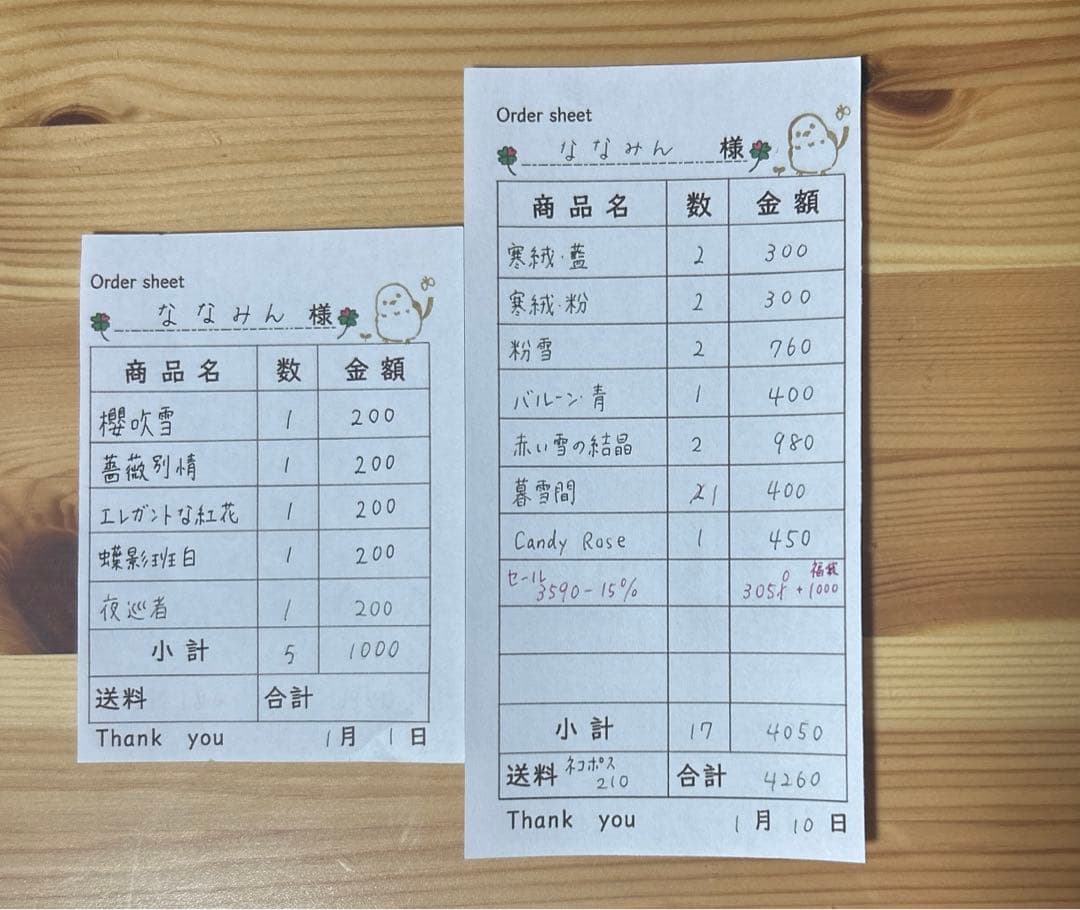 Order sheet
ななみん 様
商品名 数 金額
櫻吹雪 1 200
薔薇別情 1 200
エレガントな紅花 1 200
蝶影班白 1 200
夜巡者 1 200
小計 5 1000
送料 合計
Thank you 1月 1日
Order sheet
ななみん 様
商品名 数 金額
寒絨・藍 2 300
寒絨・粉 2 300
粉雪 2 760
バルーン・青 1 400
赤い雪の結晶 2 980
暮雪間 1 400
Candy Rose 1 450
セール 福袋
3590-15% 3050 +1000
小計 17 4050
送料 ネコポス 210 合計 4260
Thank you 1月 10日